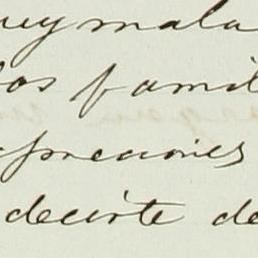 uy mala
los famil
spreciones
decirte de